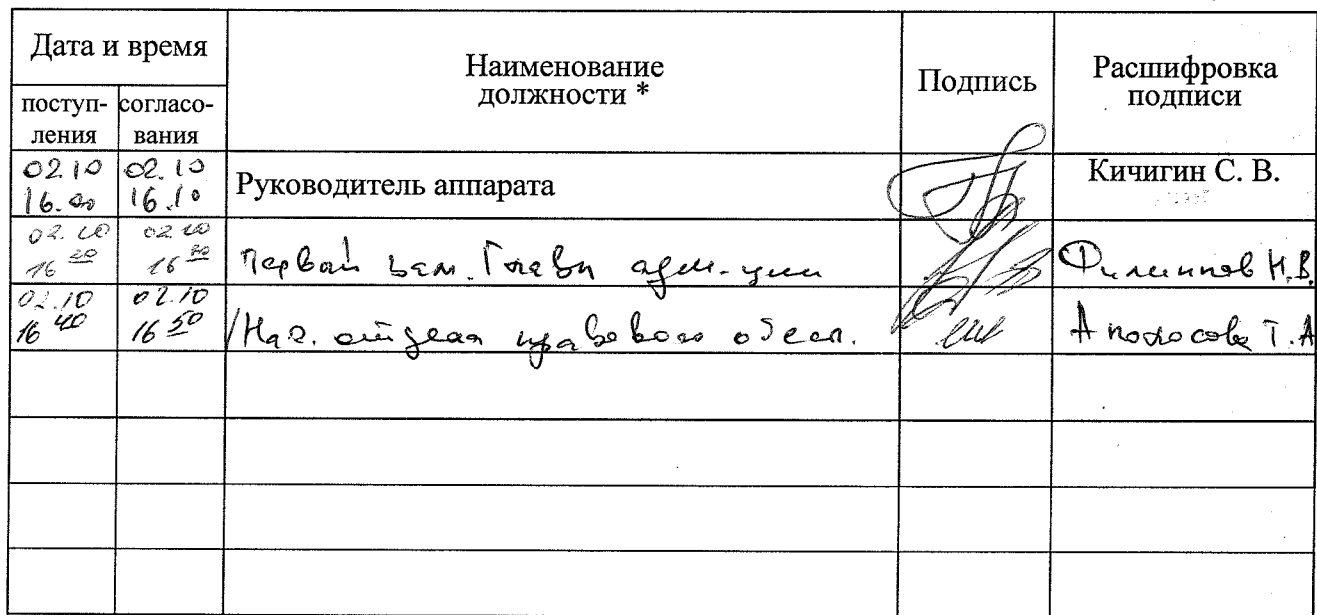 Дата и время
Наименование должности *
Подпись
Расшифровка подписи
поступ-
ления
согласо-
вания
02.10 16.00
02.10 16.10
Руководитель аппарата
Кичигин С. В.
02.10 16 20
02.10 16 30
Первый зам. Главы адм-ции
Филиппов Н.В.
02.10 16 40
02.10 16 50
Нач. отдела правового обесп.
Апологова Т.А